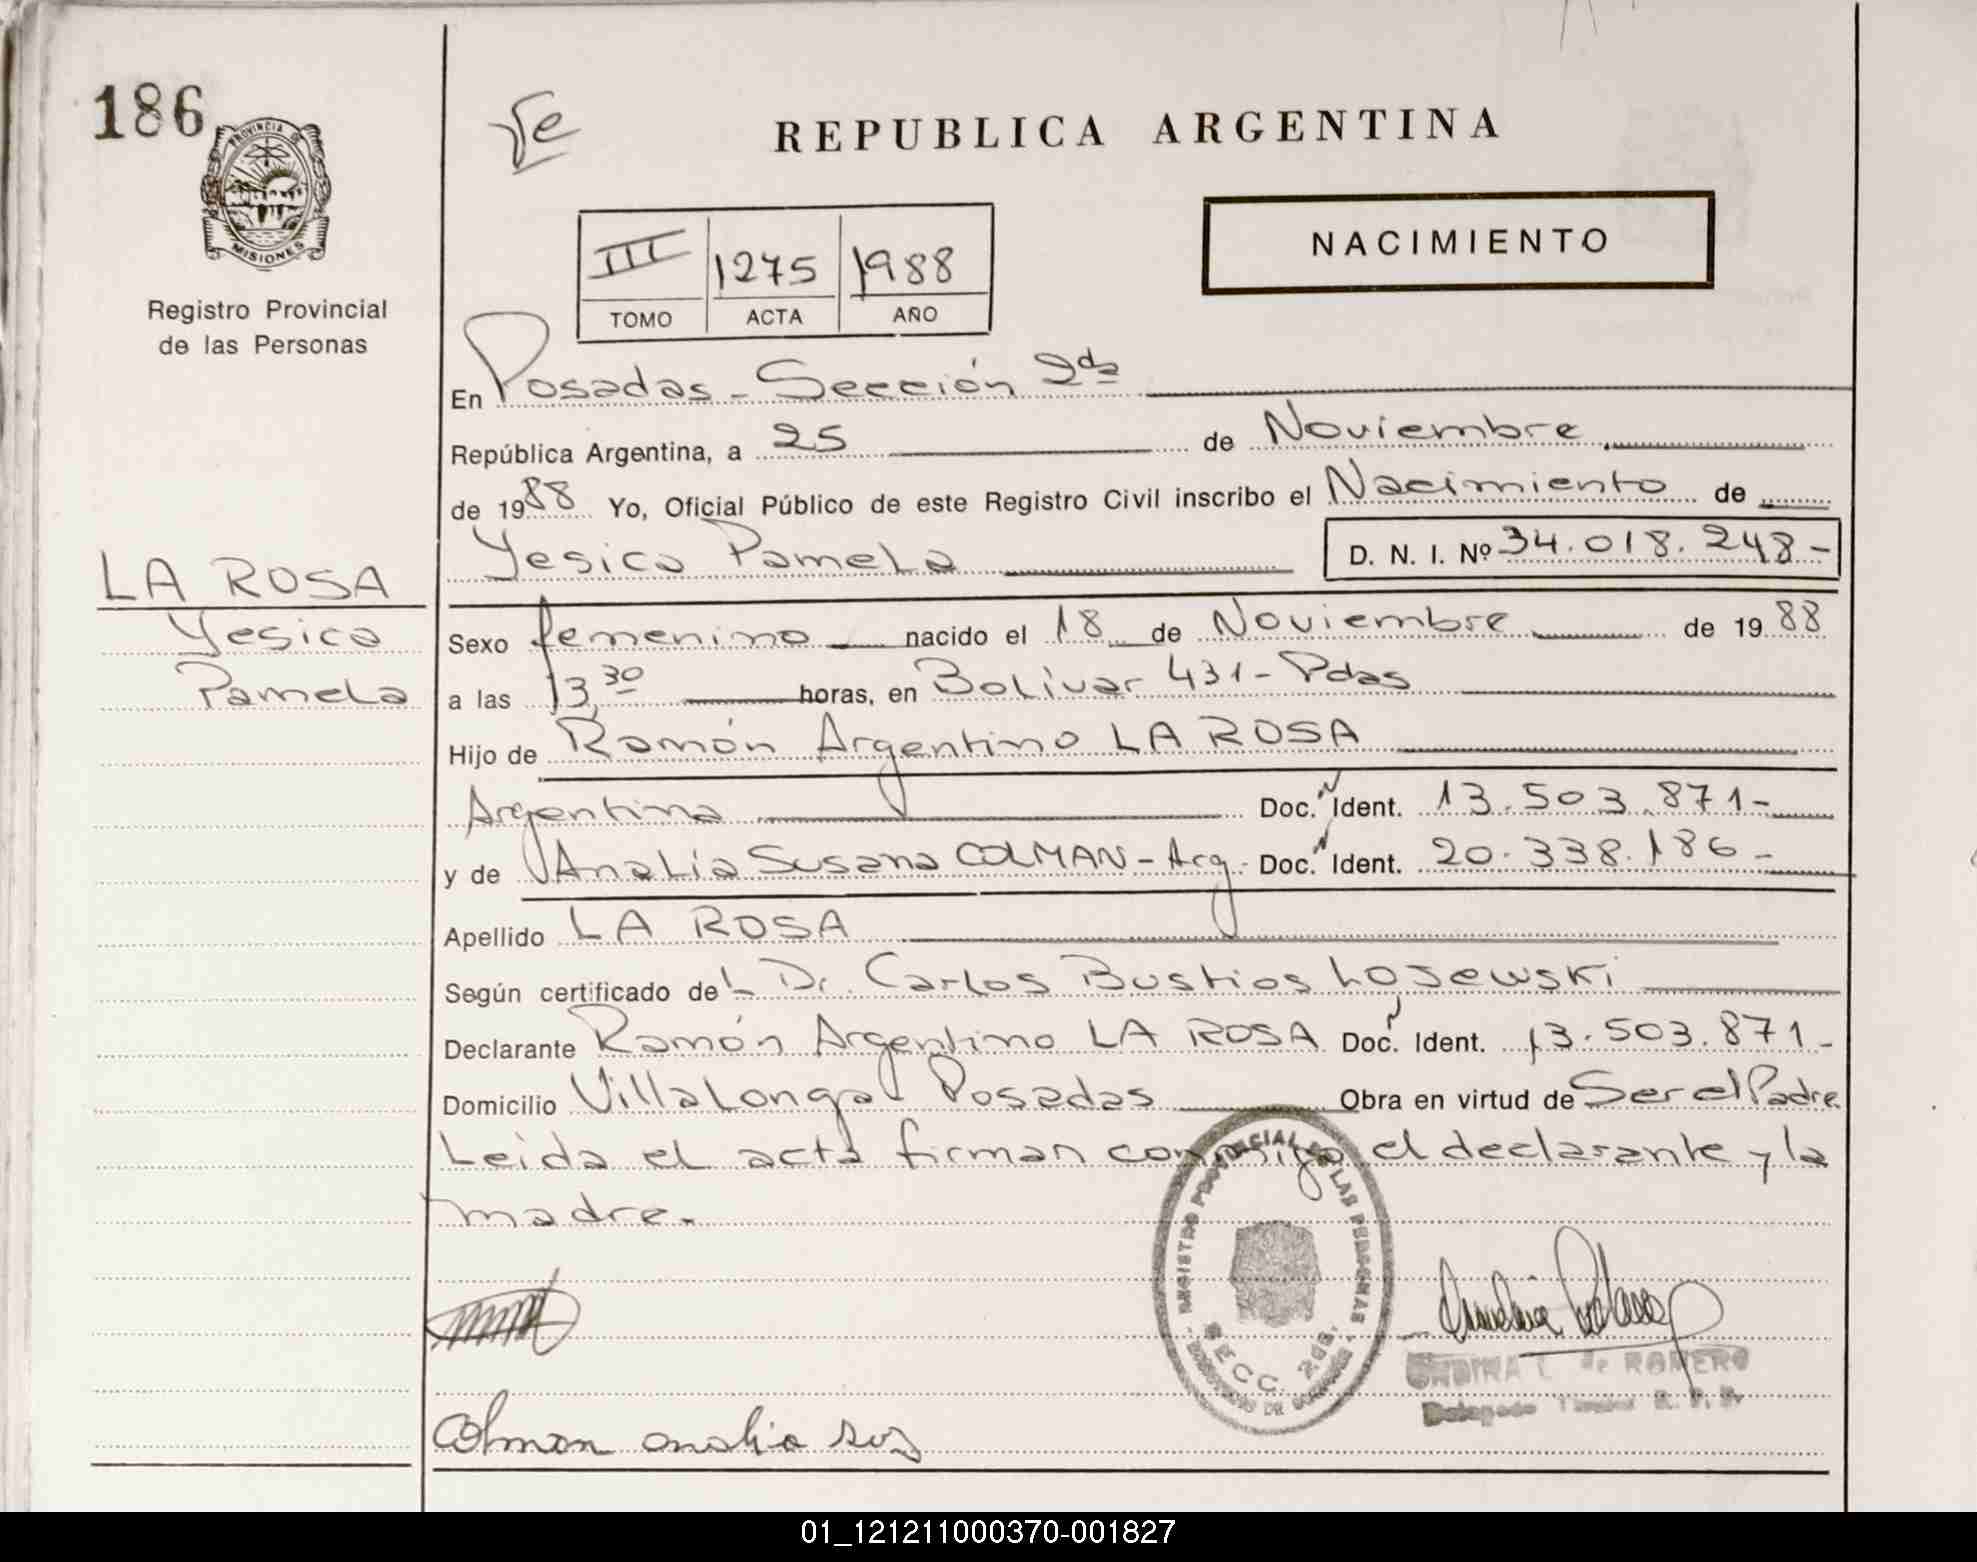 186
PROVINCIA D
MISIONES
Registro Provincial
de las Personas
REPUBLICA ARGENTINA
NACIMIENTO
III 1275 1988
TOMO ACTA AÑO
En Posadas - Sección 2da
República Argentina, a 25 de Noviembre
de 1988 Yo, Oficial Público de este Registro Civil inscribo el Nacimiento de
Yesica Pamela D. N. I. Nº 34.018.248-
LA ROSA
Yesica
Pamela
Sexo femenino nacido el 18 de Noviembre de 1988
a las 13,30 horas, en Bolivar 431 - Pdas
Hijo de Ramón Argentino LA ROSA
Argentina Doc. Ident. 13.503.871-
y de Analia Susana COLMAN - Arg. Doc. Ident. 20.338.186-
Apellido LA ROSA
Según certificado del Dr. Carlos Bustios Losewski
Declarante Ramón Argentino LA ROSA Doc. Ident. 13.503.871-
Domicilio Villalonga Posadas Obra en virtud de Ser el Padre
Leida el acta firman conmigo el declarante y la
madre.
REGISTRO PROVINCIAL DE LAS PERSONAS
SECC. 2da.
de ROMERO
Delegado Titular R. P. P.
Colman analia sus
01_121211000370-001827